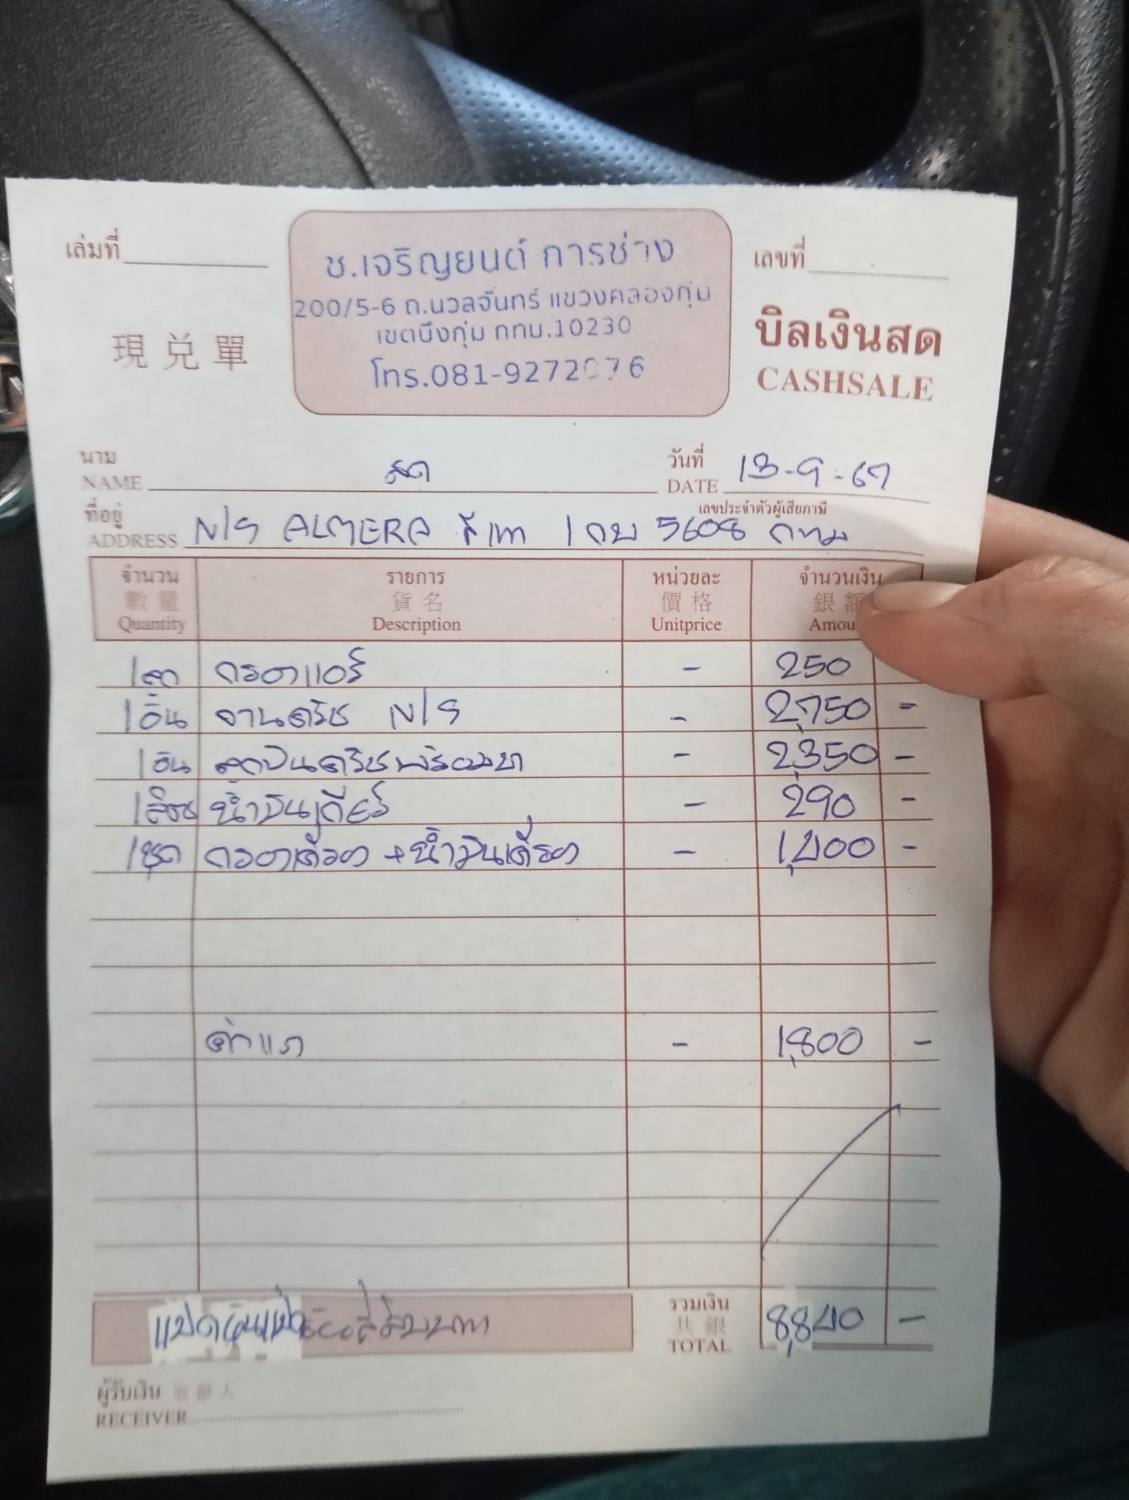 เล่มที่
ช.เจริญยนต์ การช่าง
เลขที่
200/5-6 ถ.นวลจันทร์ แขวงคลองกุ่ม
เขตบึงกุ่ม กทม.10230
โทร.081-9272076
現兌單
บิลเงินสด
CASHSALE
นาม
NAME สด
วันที่
DATE 13-9-67
เลขประจำตัวผู้เสียภาษี
ที่อยู่
ADDRESS N/S ALMERA สีเทา 1กบ 5608 กทม
จำนวน รายการ หน่วยละ จำนวนเงิน
數量 貨名 價格 銀額
Quantity Description Unitprice Amou
1ลูก กรองแอร์ - 250
1อัน จานคริช N/S - 2,750 -
1อัน ลูกปืนคริชพร้อมขา - 2,350 -
1ลิตร น้ำมันเกียร์ - 290 -
1ชุด กรองเครื่อง + น้ำมันเครื่อง - 1,400 -
ค่าแรง - 1,800 -
แปดพันแปดร้อยสี่สิบบาท
รวมเงิน
共銀
TOTAL 8,840 -
ผู้รับเงิน 收銀人
RECEIVER